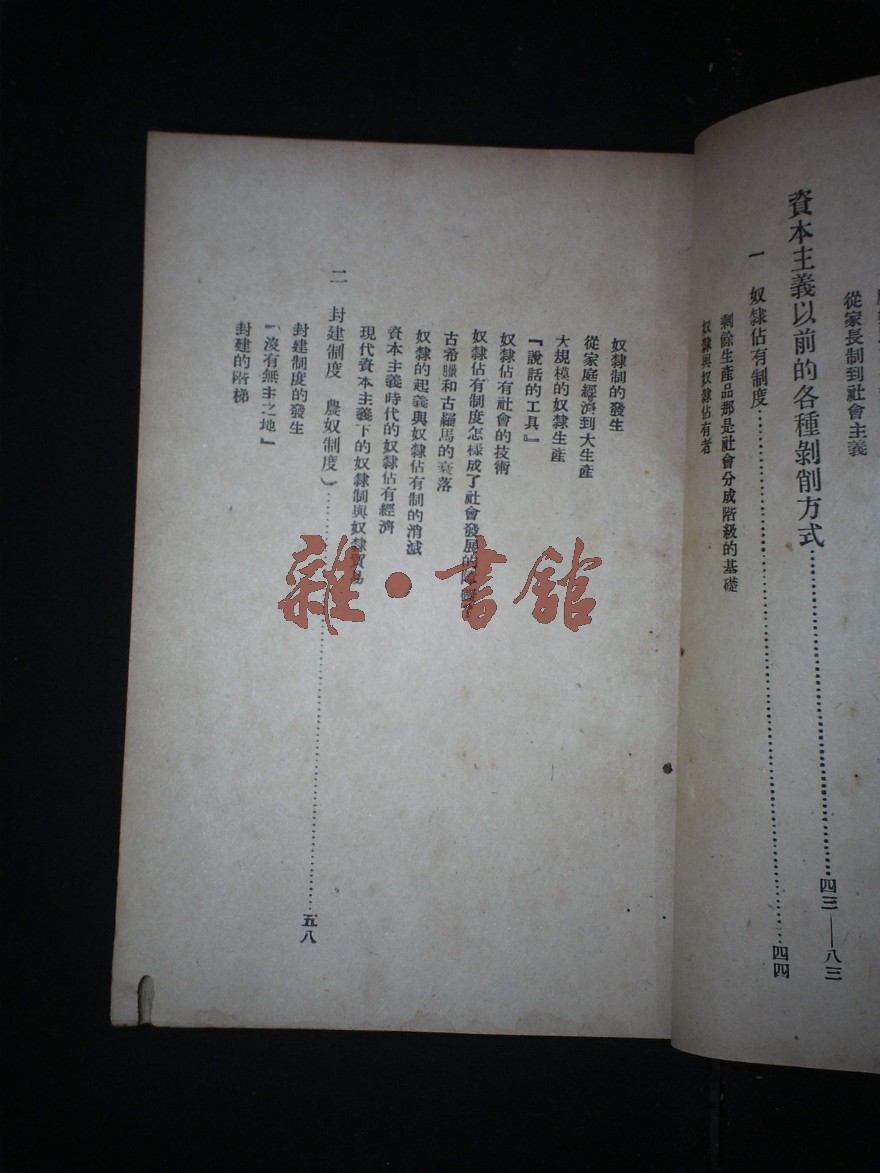 從家長制到社會主義
資本主義以前的各種剝削方式……四三——八三
一 奴隸佔有制度……四四
剩餘生產品那是社會分成階級的基礎
奴隸與奴隸佔有者
奴隸制的發生
從家庭經濟到大生產
大規模的奴隸生產
『說話的工具』
奴隸佔有社會的技術
奴隸佔有制度怎樣成了社會發展的
古希臘和古羅馬的衰落
奴隸的起義與奴隸佔有制的消滅
資本主義時代的奴隸佔有經濟
現代資本主義下的奴隸制與奴隸貿易
二 封建制度 農奴制度)……五八
封建制度的發生
『沒有無主之地』
封建的階梯
雜·書館